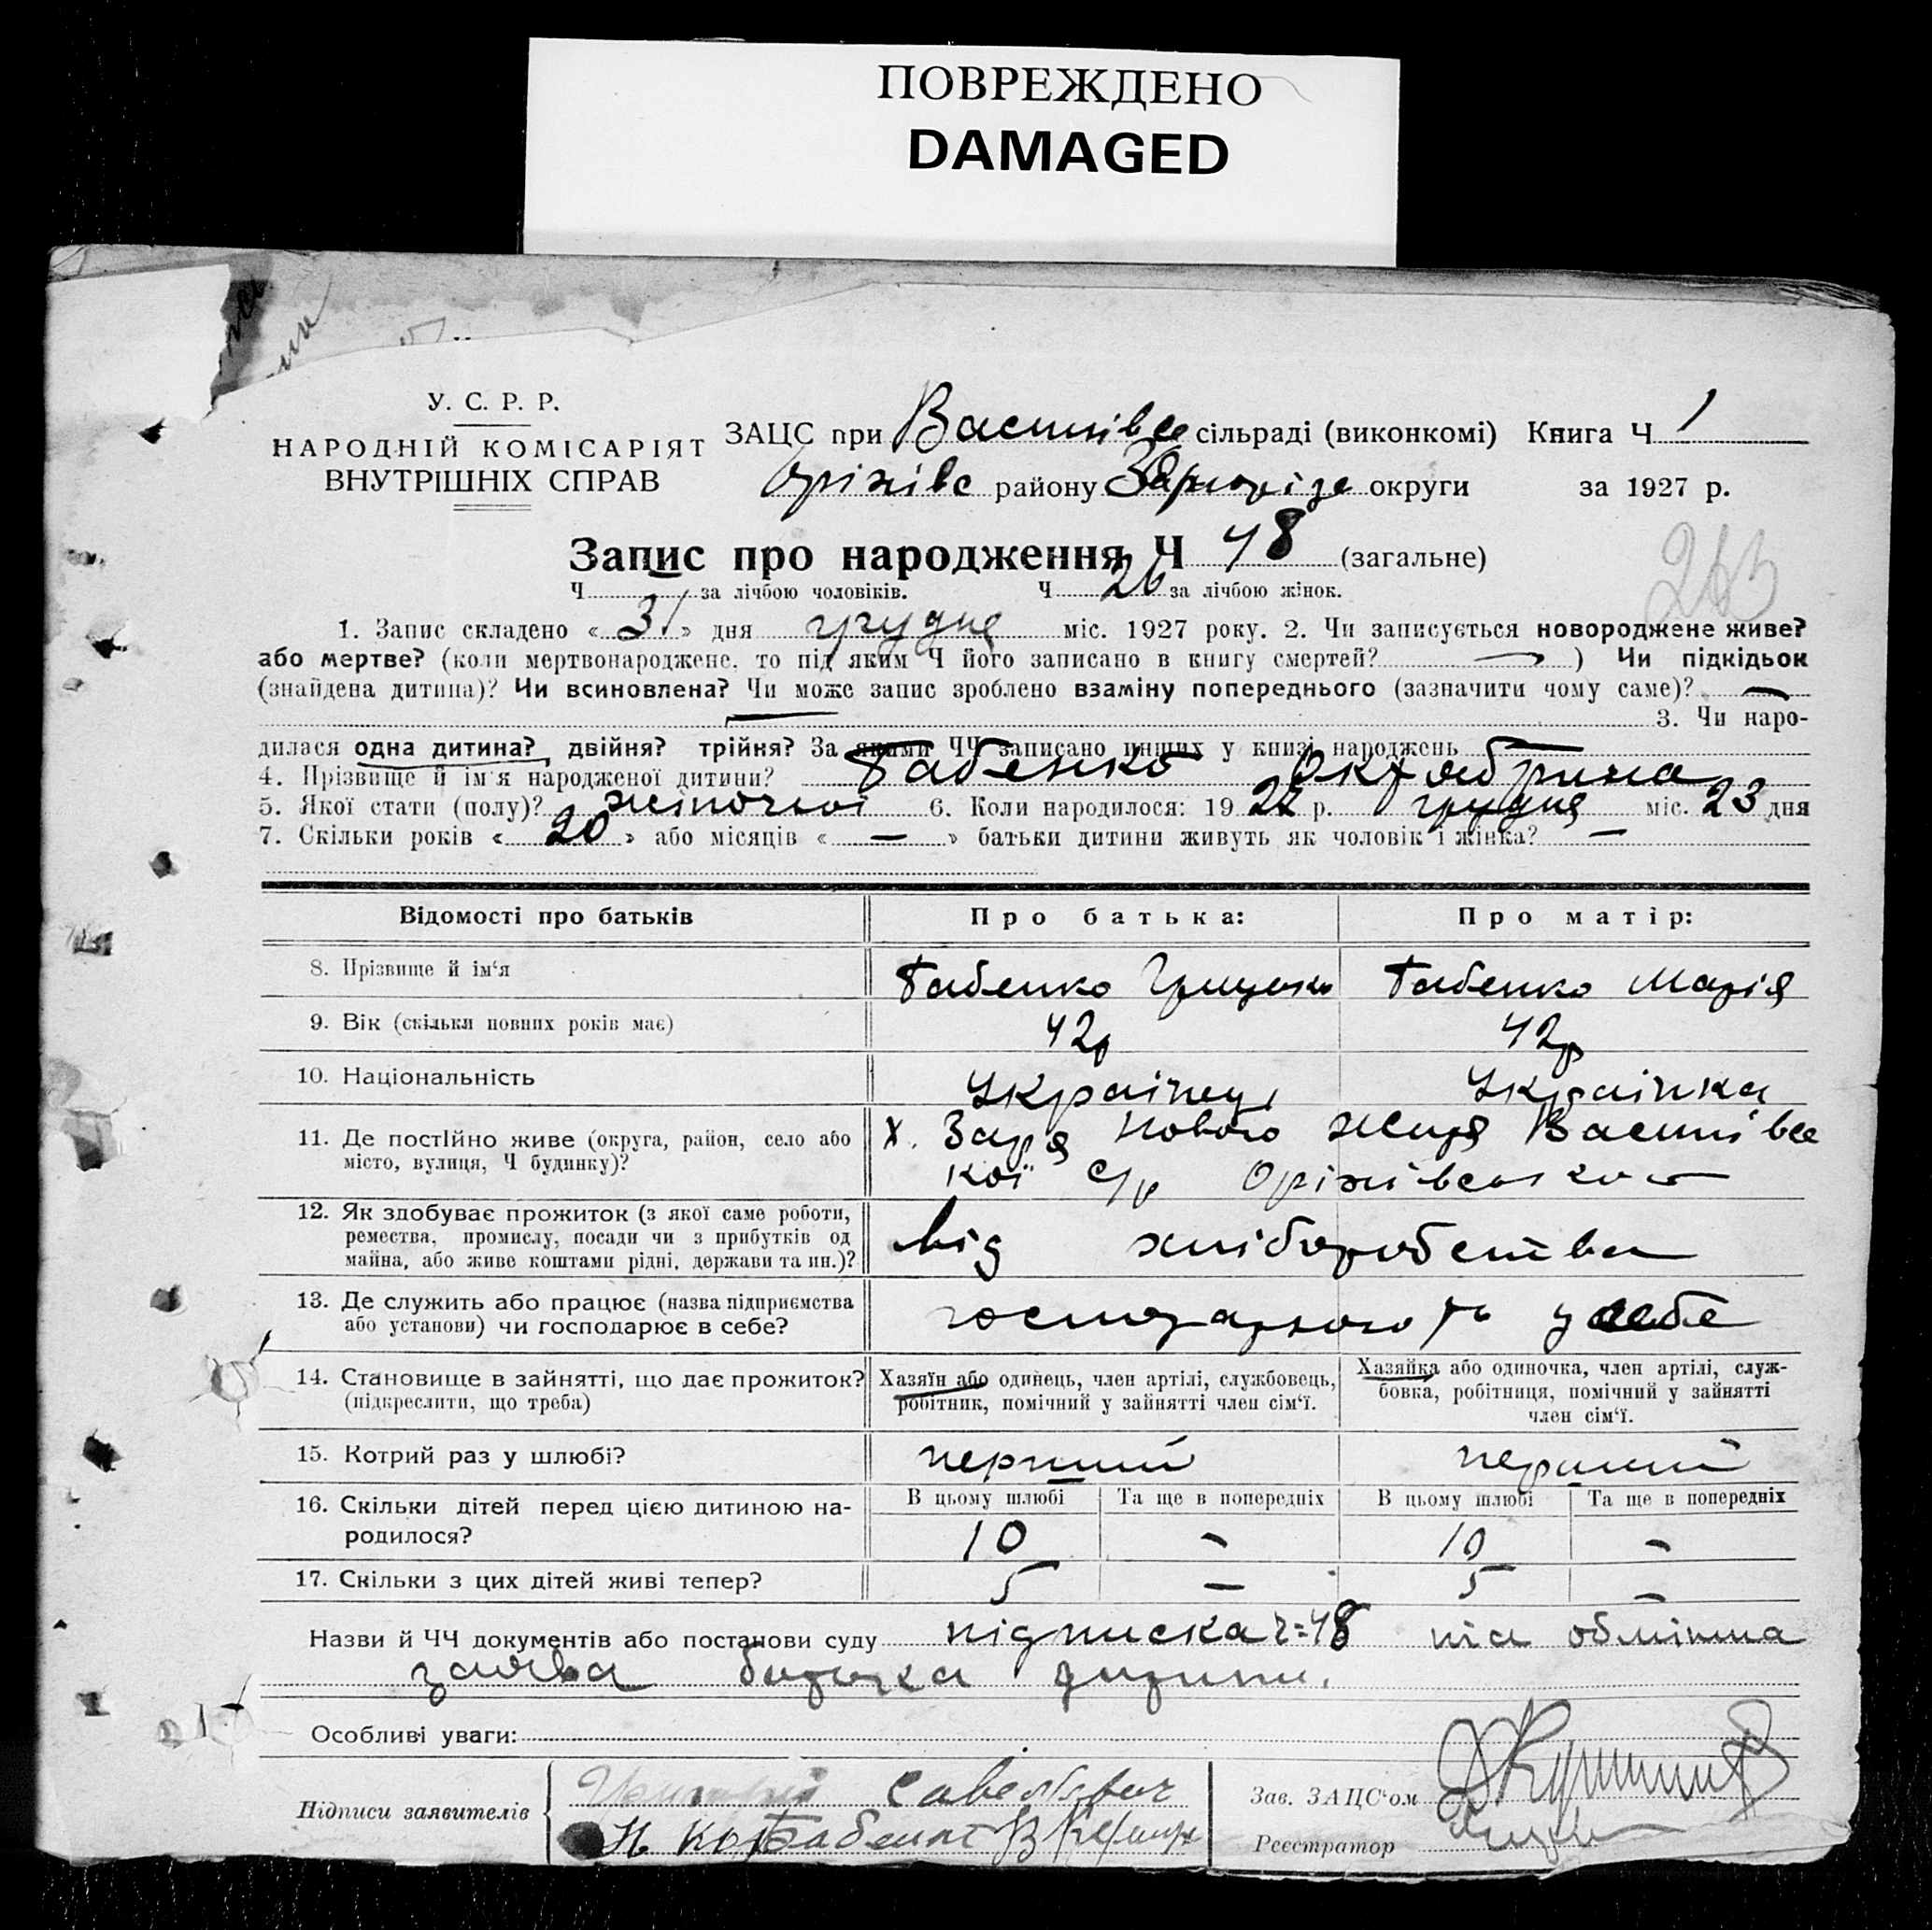 ПОВРЕЖДЕНО
DAMAGED
У. С. Р. Р.
НАРОДНІЙ КОМІСАРІЯТ
ВНУТРІШНІХ СПРАВ
ЗАЦС при Василівс сільраді (виконкомі) Книга Ч 1
Оріхівс району Запоріз округи за 1927 р.
Запис про народження Ч 48 (загальне)
Ч за лічбою чоловіків. Ч 26 за лічбою жінок.
263
1. Запис складено « 31 » дня грудня міс. 1927 року. 2. Чи записується новороджене живе?
або мертве? (коли мертвонароджене, то під яким Ч його записано в книгу смертей? — ) Чи підкідьок
(знайдена дитина)? Чи всиновлена? Чи може запис зроблено взаміну попереднього (зазначити чому саме)? —
— 3. Чи наро-
дилася одна дитина? двійня? трійня? За якими ЧЧ записано инших у книзі народжень —
4. Прізвище й ім'я народженої дитини? Бабенко Октябрина
5. Якої стати (полу)? жіночої 6. Коли народилося: 1927 р. грудня міс. 23 дня
7. Скільки років « 20 » або місяців « — » батьки дитини живуть як чоловік і жінка? —
Відомості про батьків Про батька: Про матір:
8. Прізвище й ім'я Бабенко Грицько Бабенко Марія
9. Вік (скільки повних років має) 42р 42р
10. Національність Українець Українка
11. Де постійно живе (округа, район, село або місто, вулиця, Ч будинку)? х. Заря Нового життя Василівсь
кої с/р Оріхівського
12. Як здобуває прожиток (з якої саме роботи,
ремества, промислу, посади чи з прибутків од
майна, або живе коштами рідні, держави та ин.)? від хліборобства
13. Де служить або працює (назва підприємства
або установи) чи господарює в себе? у себе
14. Становище в зайнятті, що дає прожиток?
(підкреслити, що треба)
Хазяїн або одинець, член артілі, службовець,
робітник, помічний у зайнятті член сім'ї.
Хазяйка або одиночка, член артілі, служ-
бовка, робітниця, помічний у зайнятті
член сім'ї.
15. Котрий раз у шлюбі? перший перший
16. Скільки дітей перед цією дитиною на-
родилося?
В цьому шлюбі Та ще в попередніх В цьому шлюбі Та ще в попередніх
10 - 10 -
17. Скільки з цих дітей живі тепер? 5 — 5 —
Назви й ЧЧ документів або постанови суду підписка ч=48
заява батька дитини.
Особливі уваги:
Підписи заявителів Савельевич
Зав. ЗАЦС'ом
Реєстратор